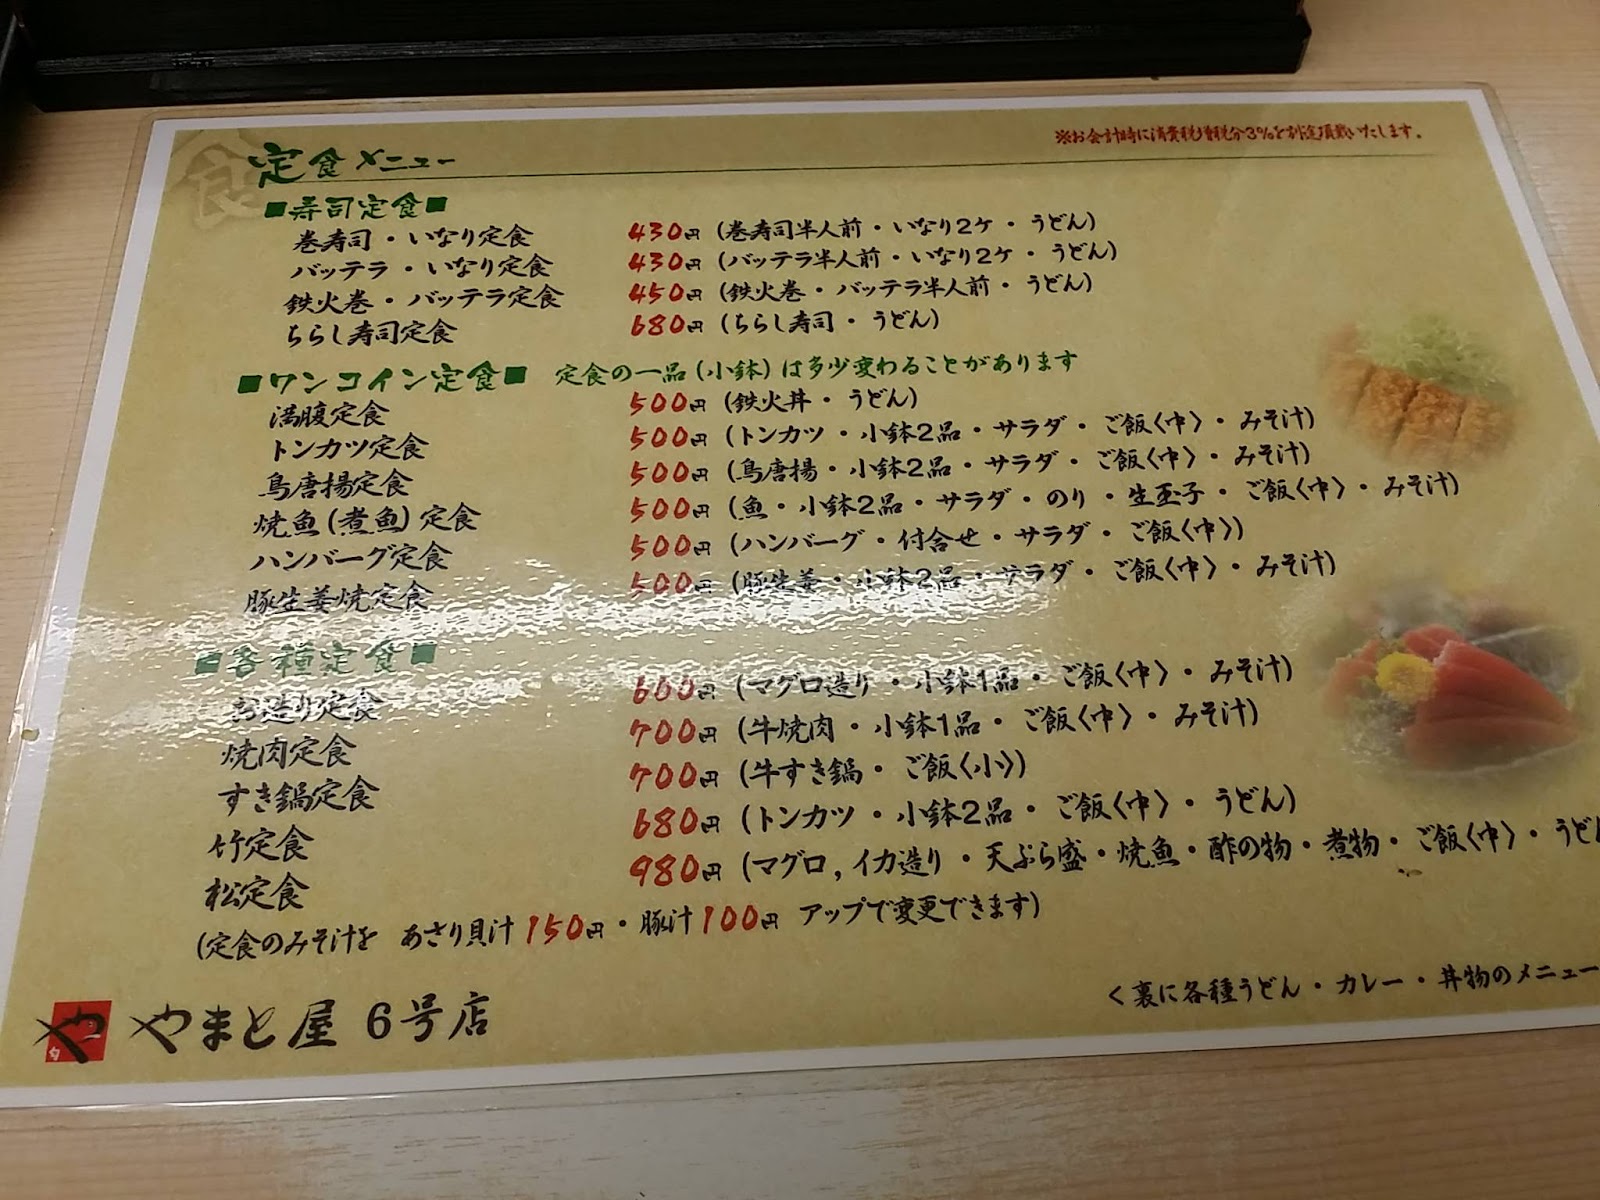 ※お会計時に消費税増税分3%を別途頂戴いたします。
食
定食メニュー
■寿司定食■
巻寿司・いなり定食 430円 (巻寿司半人前・いなり2ケ・うどん)
バッテラ・いなり定食 430円 (バッテラ半人前・いなり2ケ・うどん)
鉄火巻・バッテラ定食 450円 (鉄火巻・バッテラ半人前・うどん)
ちらし寿司定食 680円 (ちらし寿司・うどん)
■ワンコイン定食■ 定食の一品(小鉢)は多少変わることがあります
満腹定食 500円 (鉄火丼・うどん)
トンカツ定食 500円 (トンカツ・小鉢2品・サラダ・ご飯〈中〉・みそ汁)
鳥唐揚定食 500円 (鳥唐揚・小鉢2品・サラダ・ご飯〈中〉・みそ汁)
焼魚(煮魚)定食 500円 (魚・小鉢2品・サラダ・のり・生玉子・ご飯〈中〉・みそ汁)
ハンバーグ定食 500円 (ハンバーグ・付合せ・サラダ・ご飯〈中〉)
豚生姜焼定食 500円 (豚生姜・小鉢2品・サラダ・ご飯〈中〉・みそ汁)
■各種定食■
お造り定食 660円 (マグロ造り・小鉢1品・ご飯〈中〉・みそ汁)
焼肉定食 700円 (牛焼肉・小鉢1品・ご飯〈中〉・みそ汁)
すき鍋定食 700円 (牛すき鍋・ご飯〈小〉)
竹定食 680円 (トンカツ・小鉢2品・ご飯〈中〉・うどん)
松定食 980円 (マグロ,イカ造り・天ぷら盛・焼魚・酢の物・煮物・ご飯〈中〉・うどん
(定食のみそ汁を あさり貝汁150円・豚汁100円 アップで変更できます)
<裏に各種うどん・カレー・丼物のメニュー
や やまと屋 6号店